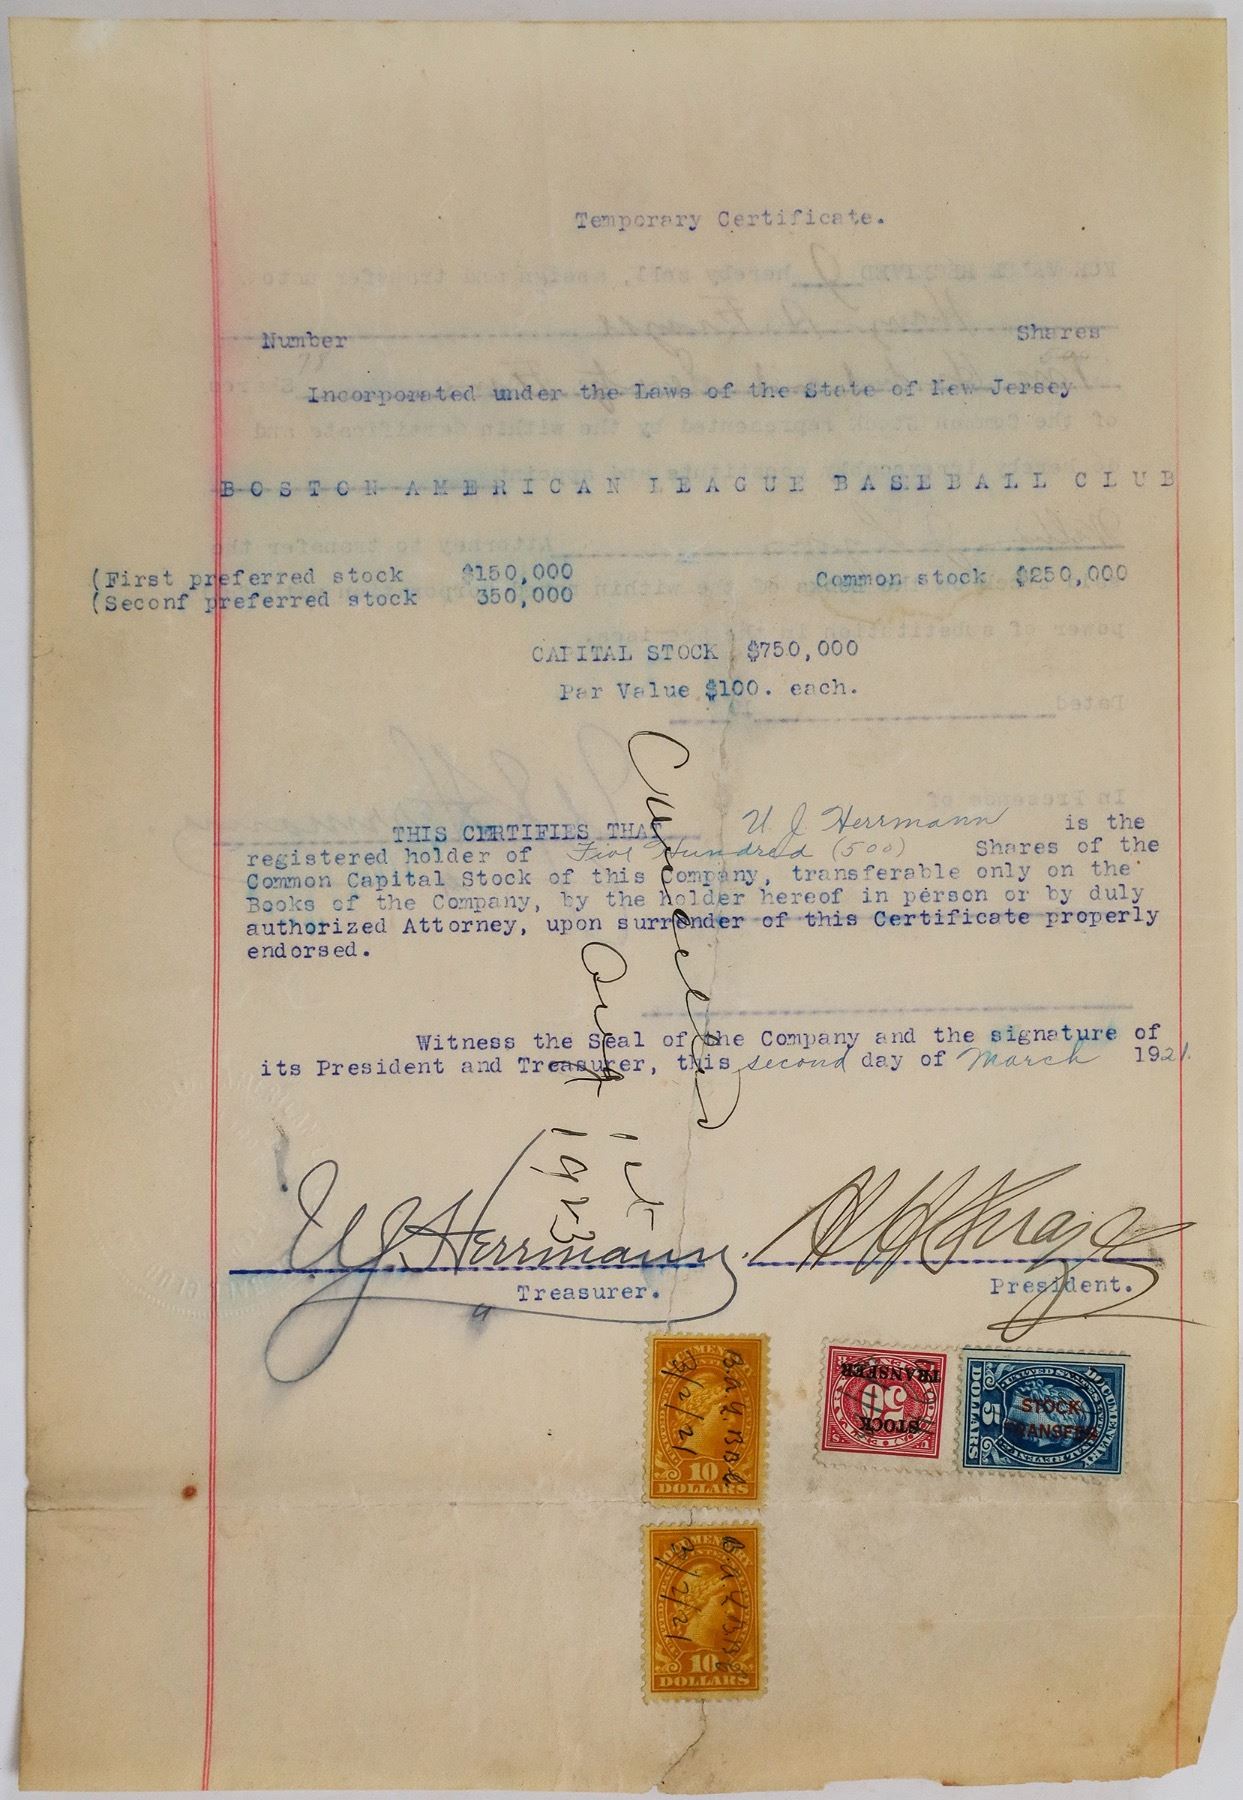 Temporary Certificate.
Number Shares
Incorporated under the Laws of the State of New Jersey
BOSTON AMERICAN LEAGUE BASEBALL CLUB
(First preferred stock $150,000 Common stock $250,000
(Seconf preferred stock 350,000
CAPITAL STOCK $750,000
Par Value $100. each.
THIS CERTIFIES THAT U. J. Herrmann is the
registered holder of Five Hundred (500) Shares of the
Common Capital Stock of this Company, transferable only on the
Books of the Company, by the holder hereof in person or by duly
authorized Attorney, upon surrender of this Certificate properly
endorsed.
Witness the Seal of the Company and the signature of
its President and Treasurer, this second day of March 1921.
Cancelled
Oct 1st
1923
U. J. Herrmann H H Frazee
Treasurer. President.
DOCUMENTARY
B.A.L.B.B.C
3/2/21
10
DOLLARS
STOCK
TRANSFER
50
DOCUMENTARY
UNITED STATES
INTERNAL REVENUE
STOCK
TRANSFER
5
DOLLARS
DOCUMENTARY
B.A.L.B.B.C
3/2/21
10
DOLLARS